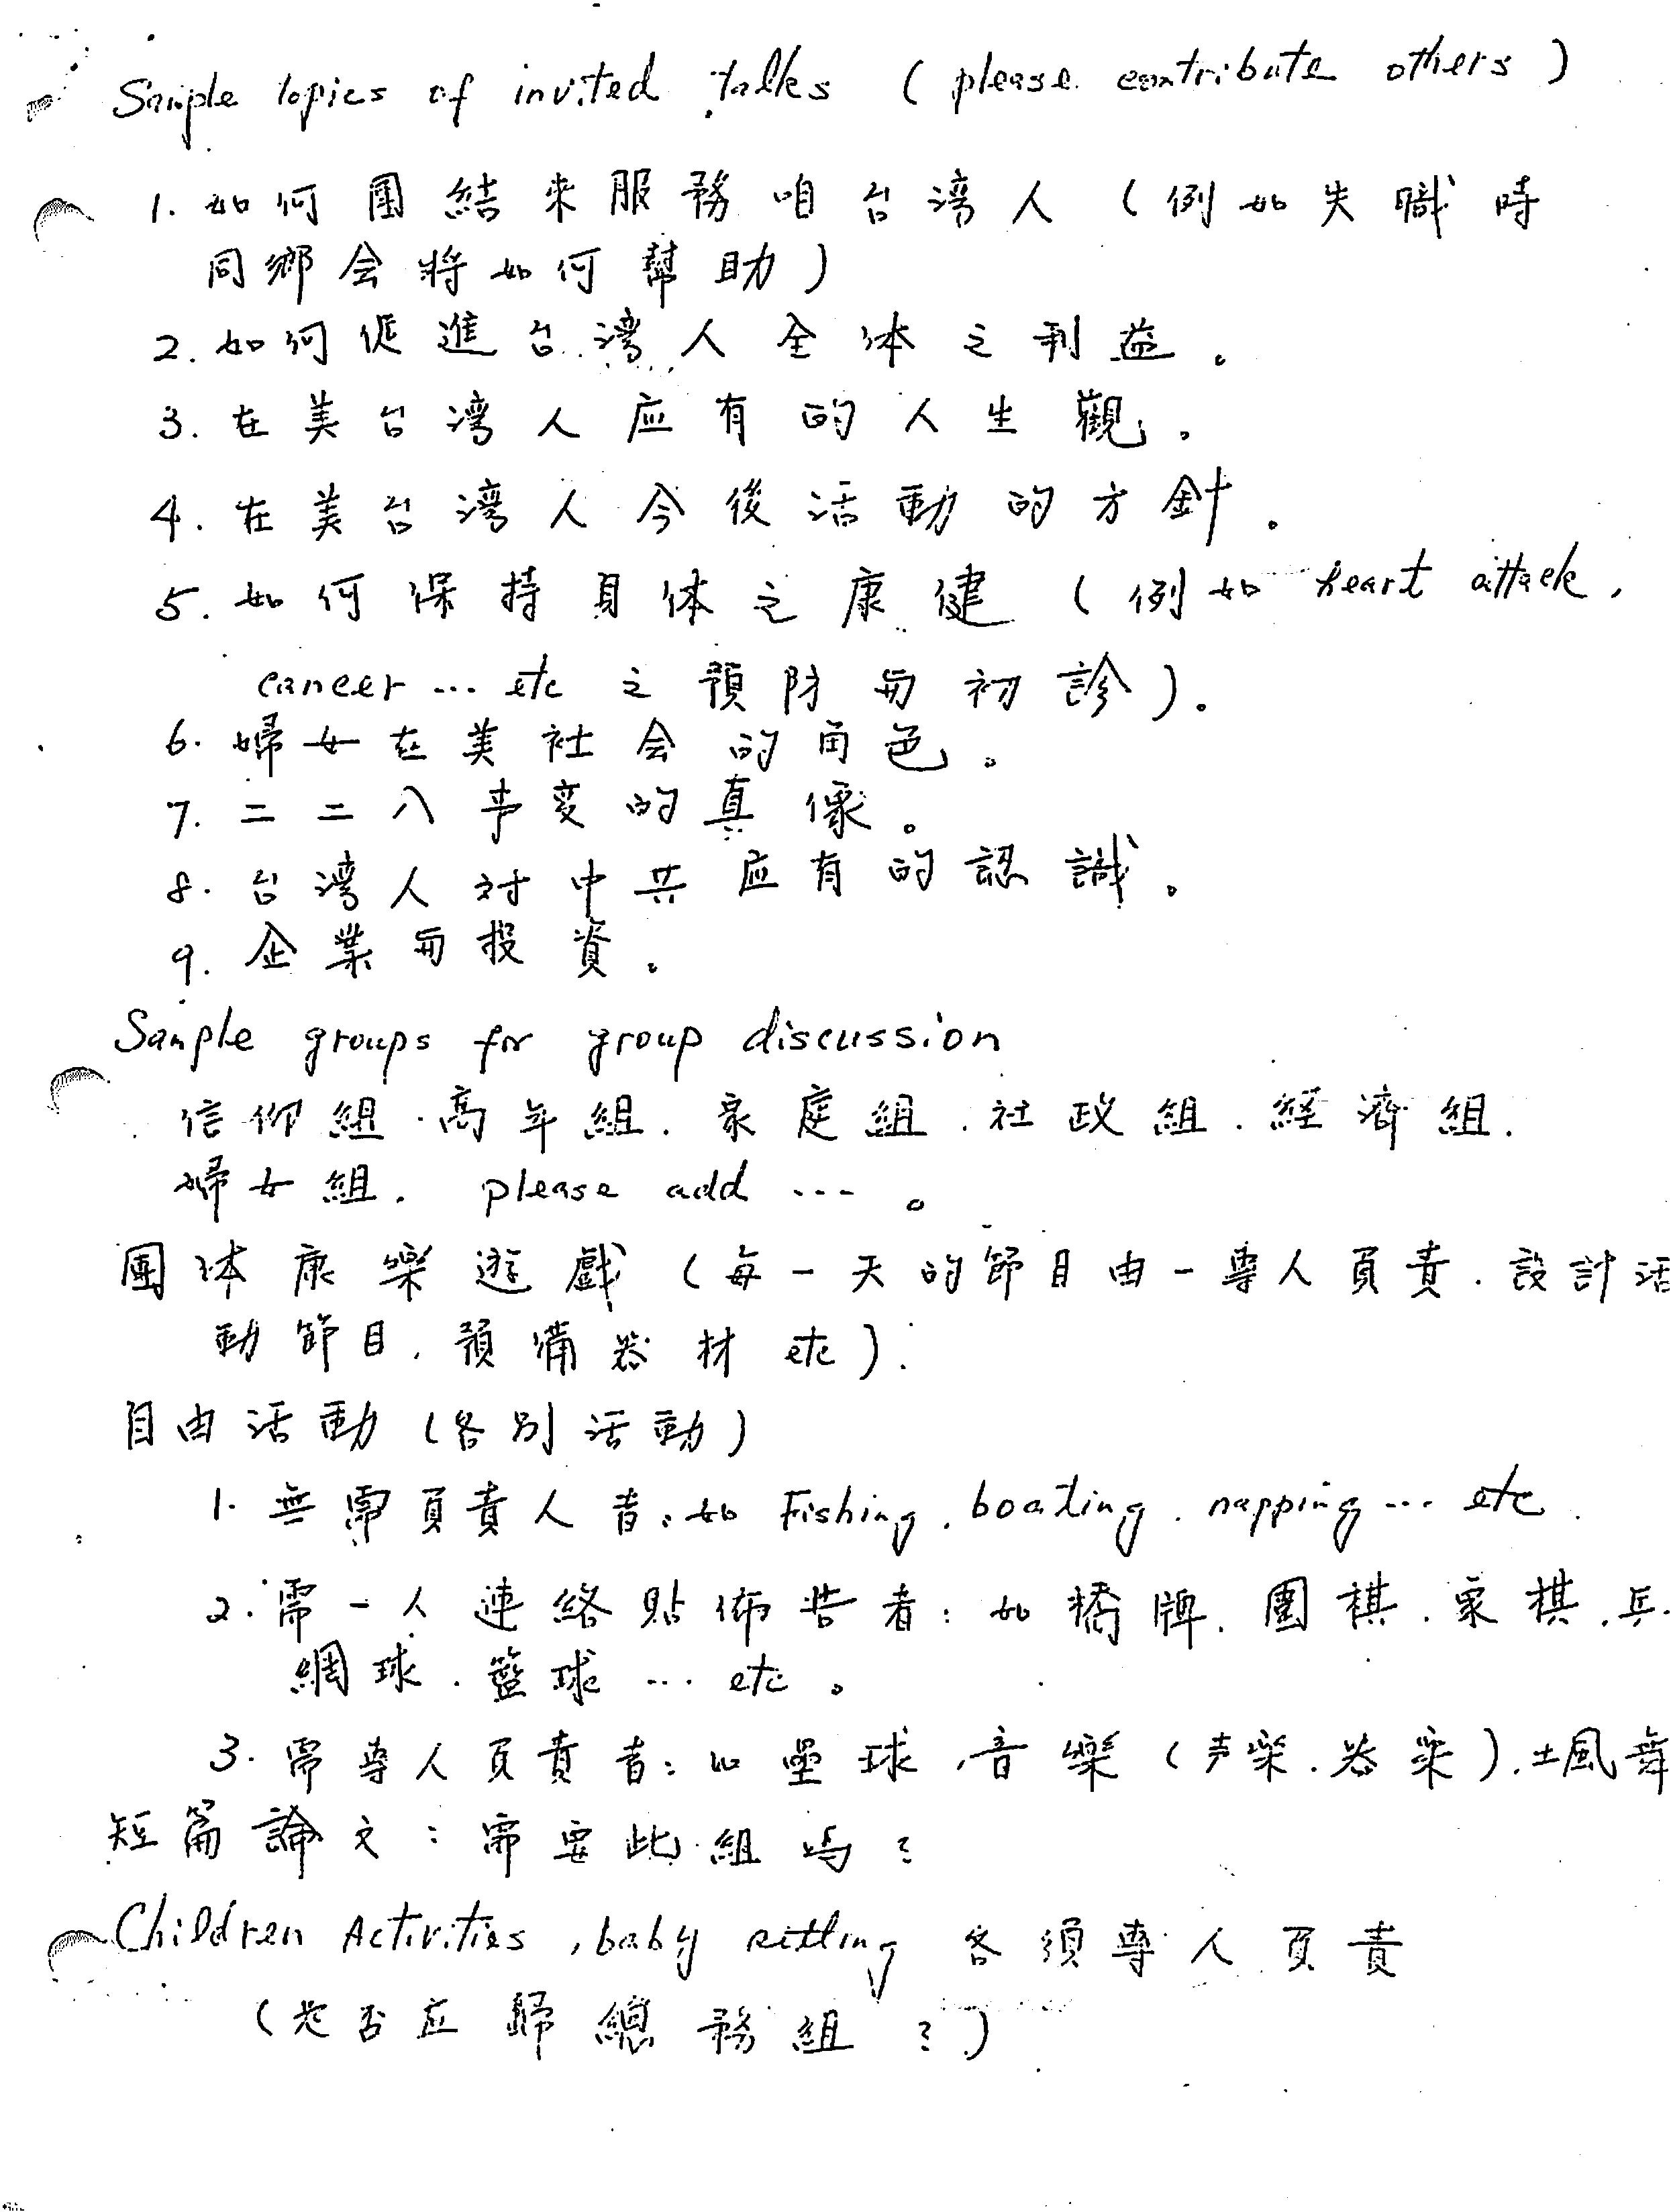 Sample topics of invited talks (please contribute others)
1. 如何團結來服務咱台湾人(例如失職時
同鄉会將如何幫助)
2. 如何促進台湾人全体之利益。
3. 在美台湾人应有的人生觀。
4. 在美台湾人今後活動的方針。
5. 如何保持身体之康健(例如 heart attack,
cancer ... etc 之預防与初診)。
6. 婦女在美社会的角色。
7. 二二八事変的真像。
8. 台湾人対中共应有的認識。
9. 企業与投資。
Sample groups for group discussion
信仰組.高年組.家庭組.社政組.経濟組.
婦女組. please add ...。
團体康樂遊戲(每一天的節目由一專人負責.設計活
動節目.預備器材 etc).
自由活動(各別活動)
1. 無需負責人者:如 Fishing. boating. napping ... etc.
2. 需一人連絡貼佈告者:如橋牌.圍棋.象棋.乒.
網球.籃球 ... etc。
3. 需專人負責者:如壘球,音樂(声楽.器楽).土風舞
短篇論文:需要此組嗎?
Children Activities, baby sitting 各須專人負責
(是否应歸總務組?)